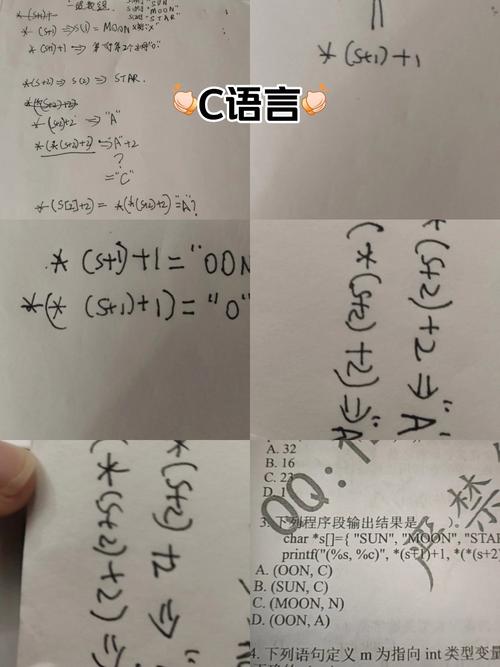 一维数组
*(s+1)+
S[0]: "SUN
S[1]: "MOON"
S[2]: "STAR
* (s+1) ⇒ S(1) = MOON
* (s+1)+1 ⇒ 第1行第2个
*(s+2) ⇒ S(2) ⇒ STAR.
*(s+2)+2 ⇒ "A"
*(*(s+2)+2) ⇒ "A"+2
?
="C"
*(S[2]+2) = *(*(s+2)+2)="A"?
🍑C语言🍑
*(s+1)+1
*(s+1)+1="OON
*(* (s+1)+1)="O"
*(s+2)+2 ⇒ "A
(*(s+2)+2) ⇒ "A
*(s+2)+2 ⇒
(*(s+2)+2) ⇒
A. 32
B. 16
C. 23
D. 1
QQ:1
严禁
3. 下列程序段输出结果是（ ）。
char *s[]={ "SUN", "MOON", "STA
printf("(%s, %c)", *(s+1)+1, *(*(s+2
A. (OON, C)
B. (SUN, C)
C. (MOON, N)
D. (OON, A)
4. 下列语句定义 m 为指向 int 类型变量